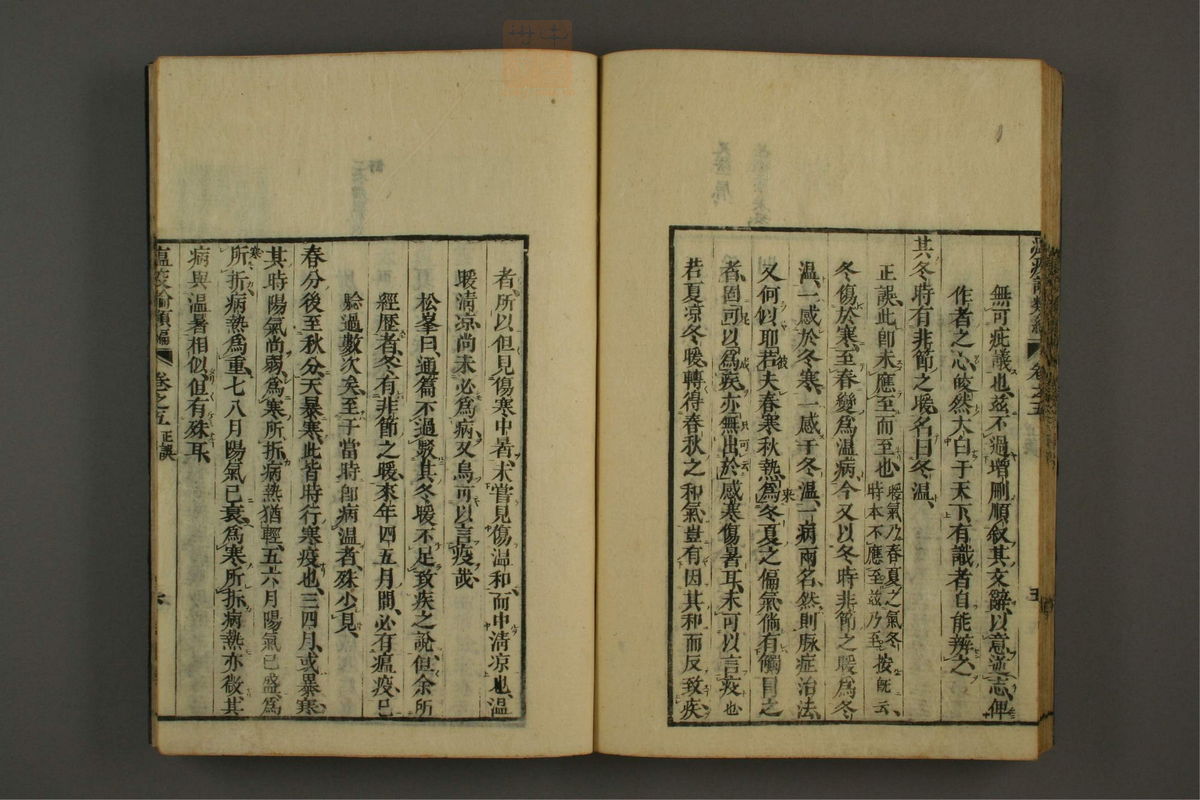 無可疵議也、茲不過增刪順叙其文辭、以意逆志、俾
作者之心、皎然大白于天下、有識者自能辨之、
其冬時有非節之暖、名曰冬溫、
正誤、此卽未應至而至也、暖氣乃春夏之氣、冬時本不應至、茲乃至、按旣云、
冬傷於寒、至春變爲溫病、今又以冬時非節之暖爲冬
溫、一感於冬寒、一感于冬溫、一病兩名、然則脉症治法、
又何似耶、若夫春寒秋熱、爲冬夏之偏氣、倘有觸冒之
者、固可以爲疾、亦無出於感寒傷暑耳、未可以言疫也
若夏凉冬暖、轉得春秋之和氣、豈有因其和而反致疾
瘟疫論類編 卷之五 五
者、所以但見傷寒中暑、未嘗見傷溫和、而中淸凉也、溫
暖淸凉、尚未必爲病、又烏可以言疫哉、
松峯曰、通篇不過駁其冬暖不足致疾之說、但余所
經歷者、冬有非節之暖、來年四五月間、必有瘟疫、已
驗過數次矣、至于當時卽病溫者、殊少見、
春分後至秋分、天暴寒、此皆時行寒疫也、三四月、或暴寒、
其時陽氣尚弱、爲寒所折、病熱猶輕、五六月陽氣已盛、爲寒
所折、病熱爲重、七八月陽氣已衰、爲寒所折、病熱亦微、其
病與溫暑相似、但有殊耳、
瘟疫論類編 卷之五 正誤